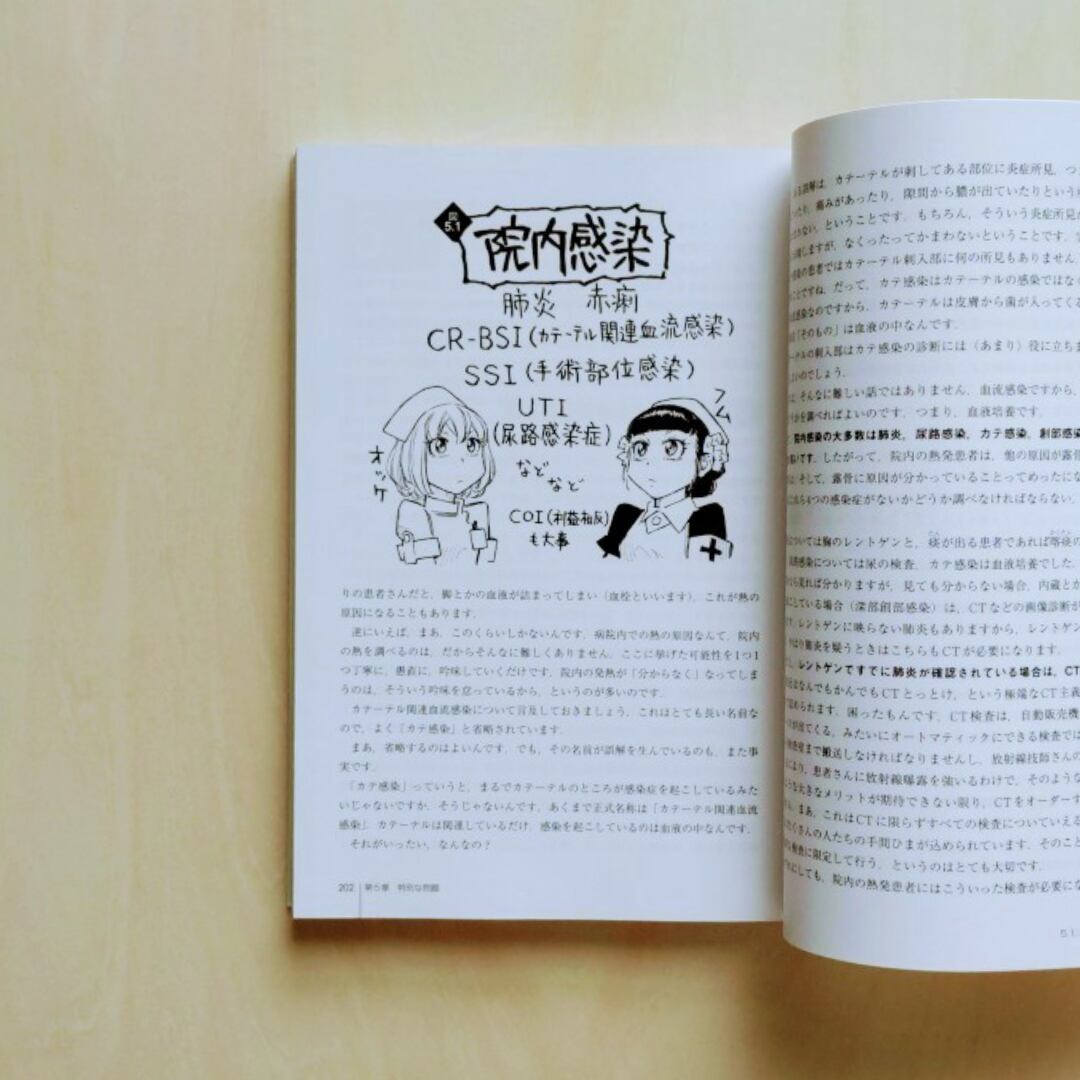 図
5.1
院内感染
肺炎 赤痢
CR-BSI(カテーテル関連血流感染)
SSI(手術部位感染)
UTI
(尿路感染症)
オッケ
フム
などなど
COI(利益相反)
も大事
りの患者さんだと，脚とかの血液が詰まってしまい（血栓といいます），これが熱の
原因になることもあります．
逆にいえば，まあ，このくらいしかないんです，病院内での熱の原因なんて．院内
の熱を調べるのは，だからそんなに難しくありません．ここに挙げた可能性を1つ1
つ丁寧に，愚直に，吟味していくだけです．院内の発熱が「分からなく」なってしま
うのは，そういう吟味を怠っているから，というのが多いのです．
カテーテル関連血流感染について言及しておきましょう．これはとても長い名前な
ので，よく「カテ感染」と省略されています．
まあ，省略するのはよいんです．でも，その名前が誤解を生んでいるのも，また事
実です．
「カテ感染」っていうと，まるでカテーテルのところが感染症を起こしているみた
いじゃないですか．そうじゃないんです．あくまで正式名称は「カテーテル関連血流
感染」．カテーテルは関連しているだけ．感染を起こしているのは血液の中なんです．
それがいったい，なんなの？
202 第5章 特別な問題
誤解は，カテーテルが刺してある部位に炎症所見，つ
ったり，痛みがあったり，隙間から膿が出ていたりという
ない，ということです．もちろん，そういう炎症所見が
しますが，なくったってかまわないということです．
の患者ではカテーテル刺入部に何の所見もありません
ことですね．だって，カテ感染はカテーテルの感染ではな
感染なのですから，カテーテルは皮膚から菌が入ってく
「そのもの」は血液の中なんです．
ーテルの刺入部はカテ感染の診断には（あまり）役に立ちま
よいのでしょう．
そんなに難しい話ではありません．血流感染ですから，
を調べればよいのです．つまり，血液培養です．
院内感染の大多数は肺炎，尿路感染，カテ感染，創部感染
いです．したがって，院内の熱発患者は，他の原因が露骨
そして，露骨に原因が分かっていることってめったにな
ら4つの感染症がないかどうか調べなければならない．
については胸のレントゲンと，痰が出る患者であれば喀痰の
路感染については尿の検査，カテ感染は血液培養でした．
見れば分かりますが，見ても分からない場合，内蔵とか
にしている場合（深部創部感染）は，CTなどの画像診断が
レントゲンに映らない肺炎もありますから，レントゲン
はり肺炎を疑うときはこちらもCTが必要になります．
レントゲンですでに肺炎が確認されている場合は，CT
なんでもかんでもCTとっとけ，という極端なCT主義
められます．困ったもんです．CT検査は，自動販売機
出てくる，みたいにオートマティックにできる検査では
検査室まで搬送しなければなりませんし，放射線技師さんの
により，患者さんに放射線曝露を強いるわけで，そのような
大きなメリットが期待できない限り，CTをオーダーす
まあ，これはCTに限らずすべての検査についていえる
くさんの人たちの手間ひまが込められています．そのこと
検査に限定して行う，というのはとても大切です．
にしても，院内の熱発患者にはこういった検査が必要にな
5.1